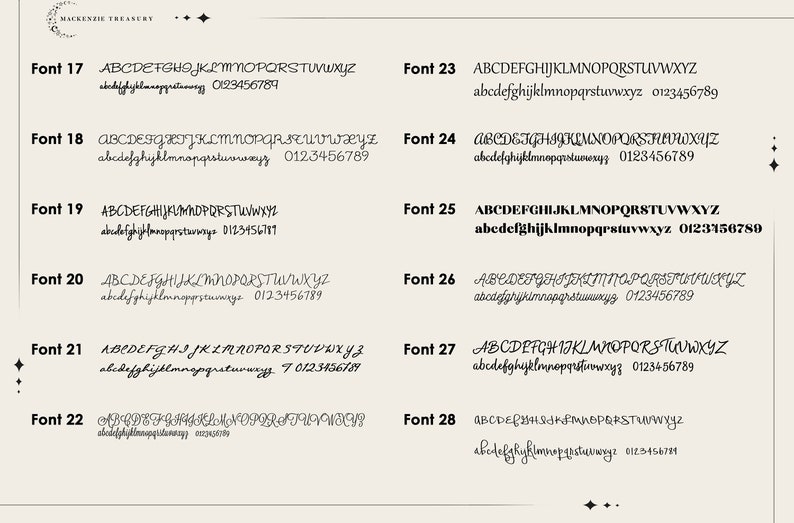 MACKENZIE TREASURY
Font 17 ABCDEFGHIJKLMNOPQRSTUVWXYZ
abcdefghijklmnopqrstuvwxyz 0123456789
Font 18 ABCDEFGHIJKLMNOPQRSTUVWXYZ
abcdefghijklmnopqrstuvwxyz 0123456789
Font 19 ABCDEFGHIJKLMNOPQRSTUVWXYZ
abcdefghijklmnopqrstuvwxyz 0123456789
Font 20 ABCDEFGHIJKLMNOPQRSTUVWXYZ
abcdefghijklmnopqrstuvwxyz 0123456789
Font 21 ABCDEFGHIJKLMNOPQRSTUVWXYZ
abcdefghijklmnopqrstuvwxyz 9 0123456789
Font 22 ABCDEFGHIJKLMNOPQRSTUVWXYZ
abcdefghijklmnopqrstuvwxyz 0123456789
Font 23 ABCDEFGHIJKLMNOPQRSTUVWXYZ
abcdefghijklmnopqrstuvwxyz 0123456789
Font 24 ABCDEFGHIJKLMNOPQRSTUVWXYZ
abcdefghijklmnopqrstuvwxyz 0123456789
Font 25 ABCDEFGHIJKLMNOPQRSTUVWXYZ
abcdefghijklmnopqrstuvwxyz 0123456789
Font 26 ABCDEFGHIJKLMNOPQRSTUVWXYZ
abcdefghijklmnopqrstuvwxyz 0123456789
Font 27 ABCDEFGHIJKLMNOPQRSTUVWXYZ
abcdefghijklmnopqrstuvwxyz 0123456789
Font 28 ABCDEFGHIJKLMNOPQRSTUVWXYZ
abcdefghijklmnopqrstuvwxyz 0123456789